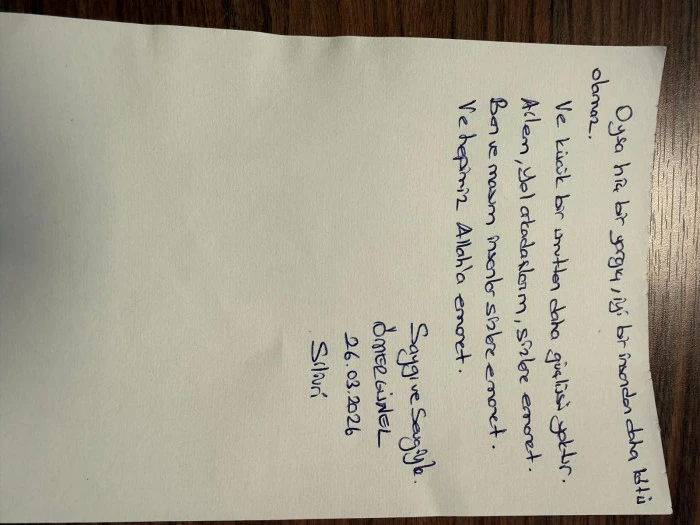 Oysa hiç bir yargı, iyi bir insandan daha kötü
olamaz.
Ve küçük bir umuttan daha güçlüsü yoktur.
Ailem, yol arkadaşlarım, sizlere emanet.
Ben ve masum insanlar sizlere emanet.
Ve hepimiz Allah'a emanet.
Saygı ve Sevgiyle.
ÖMER GÜNEL
26.03.2026
Silivri